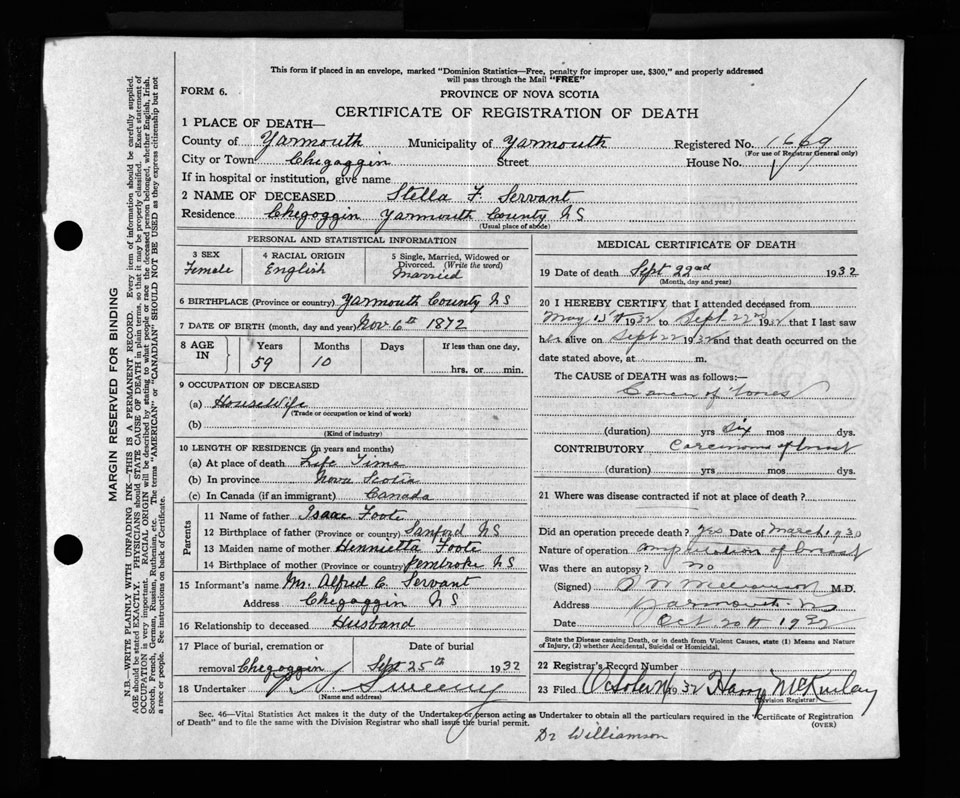 This form if placed in an envelope, marked "Dominion Statistics—Free, penalty for improper use, $300," and properly addressed
will pass through the Mail "FREE"
FORM 6.
PROVINCE OF NOVA SCOTIA
CERTIFICATE OF REGISTRATION OF DEATH
1 PLACE OF DEATH—
County of Yarmouth Municipality of Yarmouth Registered No. 1669
(For use of Registrar General only)
City or Town Chegoggin Street House No.
If in hospital or institution, give name
2 NAME OF DECEASED Stella F. Servant
Residence Chegoggin Yarmouth County NS
(Usual place of abode)
PERSONAL AND STATISTICAL INFORMATION
3 SEX 4 RACIAL ORIGIN 5 Single, Married, Widowed or
Divorced. (Write the word)
Female English Married
6 BIRTHPLACE (Province or country) Yarmouth County NS
7 DATE OF BIRTH (month, day and year) Nov 6th 1872
8 AGE IN Years Months Days If less than one day.
59 10 hrs. or min.
9 OCCUPATION OF DECEASED
(a) Housewife
(Trade or occupation or kind of work)
(b)
(Kind of industry)
10 LENGTH OF RESIDENCE (in years and months)
(a) At place of death Life Time
(b) In province Nova Scotia
(c) In Canada (if an immigrant) Canada
Parents
11 Name of father Isaac Foote
12 Birthplace of father (Province or country) Sanford NS
13 Maiden name of mother Henrietta Foote
14 Birthplace of mother (Province or country) Pembroke NS
15 Informant's name Mr. Alfred C. Servant
Address Chegoggin NS
16 Relationship to deceased Husband
17 Place of burial, cremation or Date of burial
removal Chegoggin Sept 25th 1932
18 Undertaker Sweeny
(Name and address)
MEDICAL CERTIFICATE OF DEATH
19 Date of death Sept 22nd 1932
(Month, day and year)
20 I HEREBY CERTIFY, that I attended deceased from
May 15th 1932 to Sept 22nd 1932 that I last saw
her alive on Sept 22 1932 and that death occurred on the
date stated above, at m.
The CAUSE of DEATH was as follows:—
Cancer of
(duration) yrs six mos dys.
CONTRIBUTORY Carcinoma of breast
(duration) yrs. mos dys.
21 Where was disease contracted if not at place of death?
Did an operation precede death? yes Date of March 1930
Nature of operation amputation of breast
Was there an autopsy? no
(Signed) M.D.
Address Yarmouth NS
Date Oct 20th 1932
State the Disease causing Death, or in death from Violent Causes, state (1) Means and Nature
of Injury, (2) whether Accidental, Suicidal or Homicidal.
22 Registrar's Record Number
23 Filed October 32 Harry McKinlay
(Division Registrar)
Sec. 46—Vital Statistics Act makes it the duty of the Undertaker or person acting as Undertaker to obtain all the particulars required in the "Certificate of Registration
of Death" and to file the same with the Division Registrar who shall issue the burial permit.
(OVER)
Dr Williamson
MARGIN RESERVED FOR BINDING
N.B.—WRITE PLAINLY WITH UNFADING INK—THIS IS A PERMANENT RECORD. Every item of information should be carefully supplied.
AGE should be stated EXACTLY. PHYSICIANS should STATE CAUSE OF DEATH in plain terms, so that it may be properly classified. Exact statement of
OCCUPATION is very important. RACIAL ORIGIN will be described by stating to what people or race the deceased person belonged, whether English, Irish,
Scotch, French, German, Russian, Ruthenian, etc. The terms "AMERICAN" or "CANADIAN" SHOULD NOT BE USED as they express citizenship but not
a race or people. See instructions on back of Certificate.